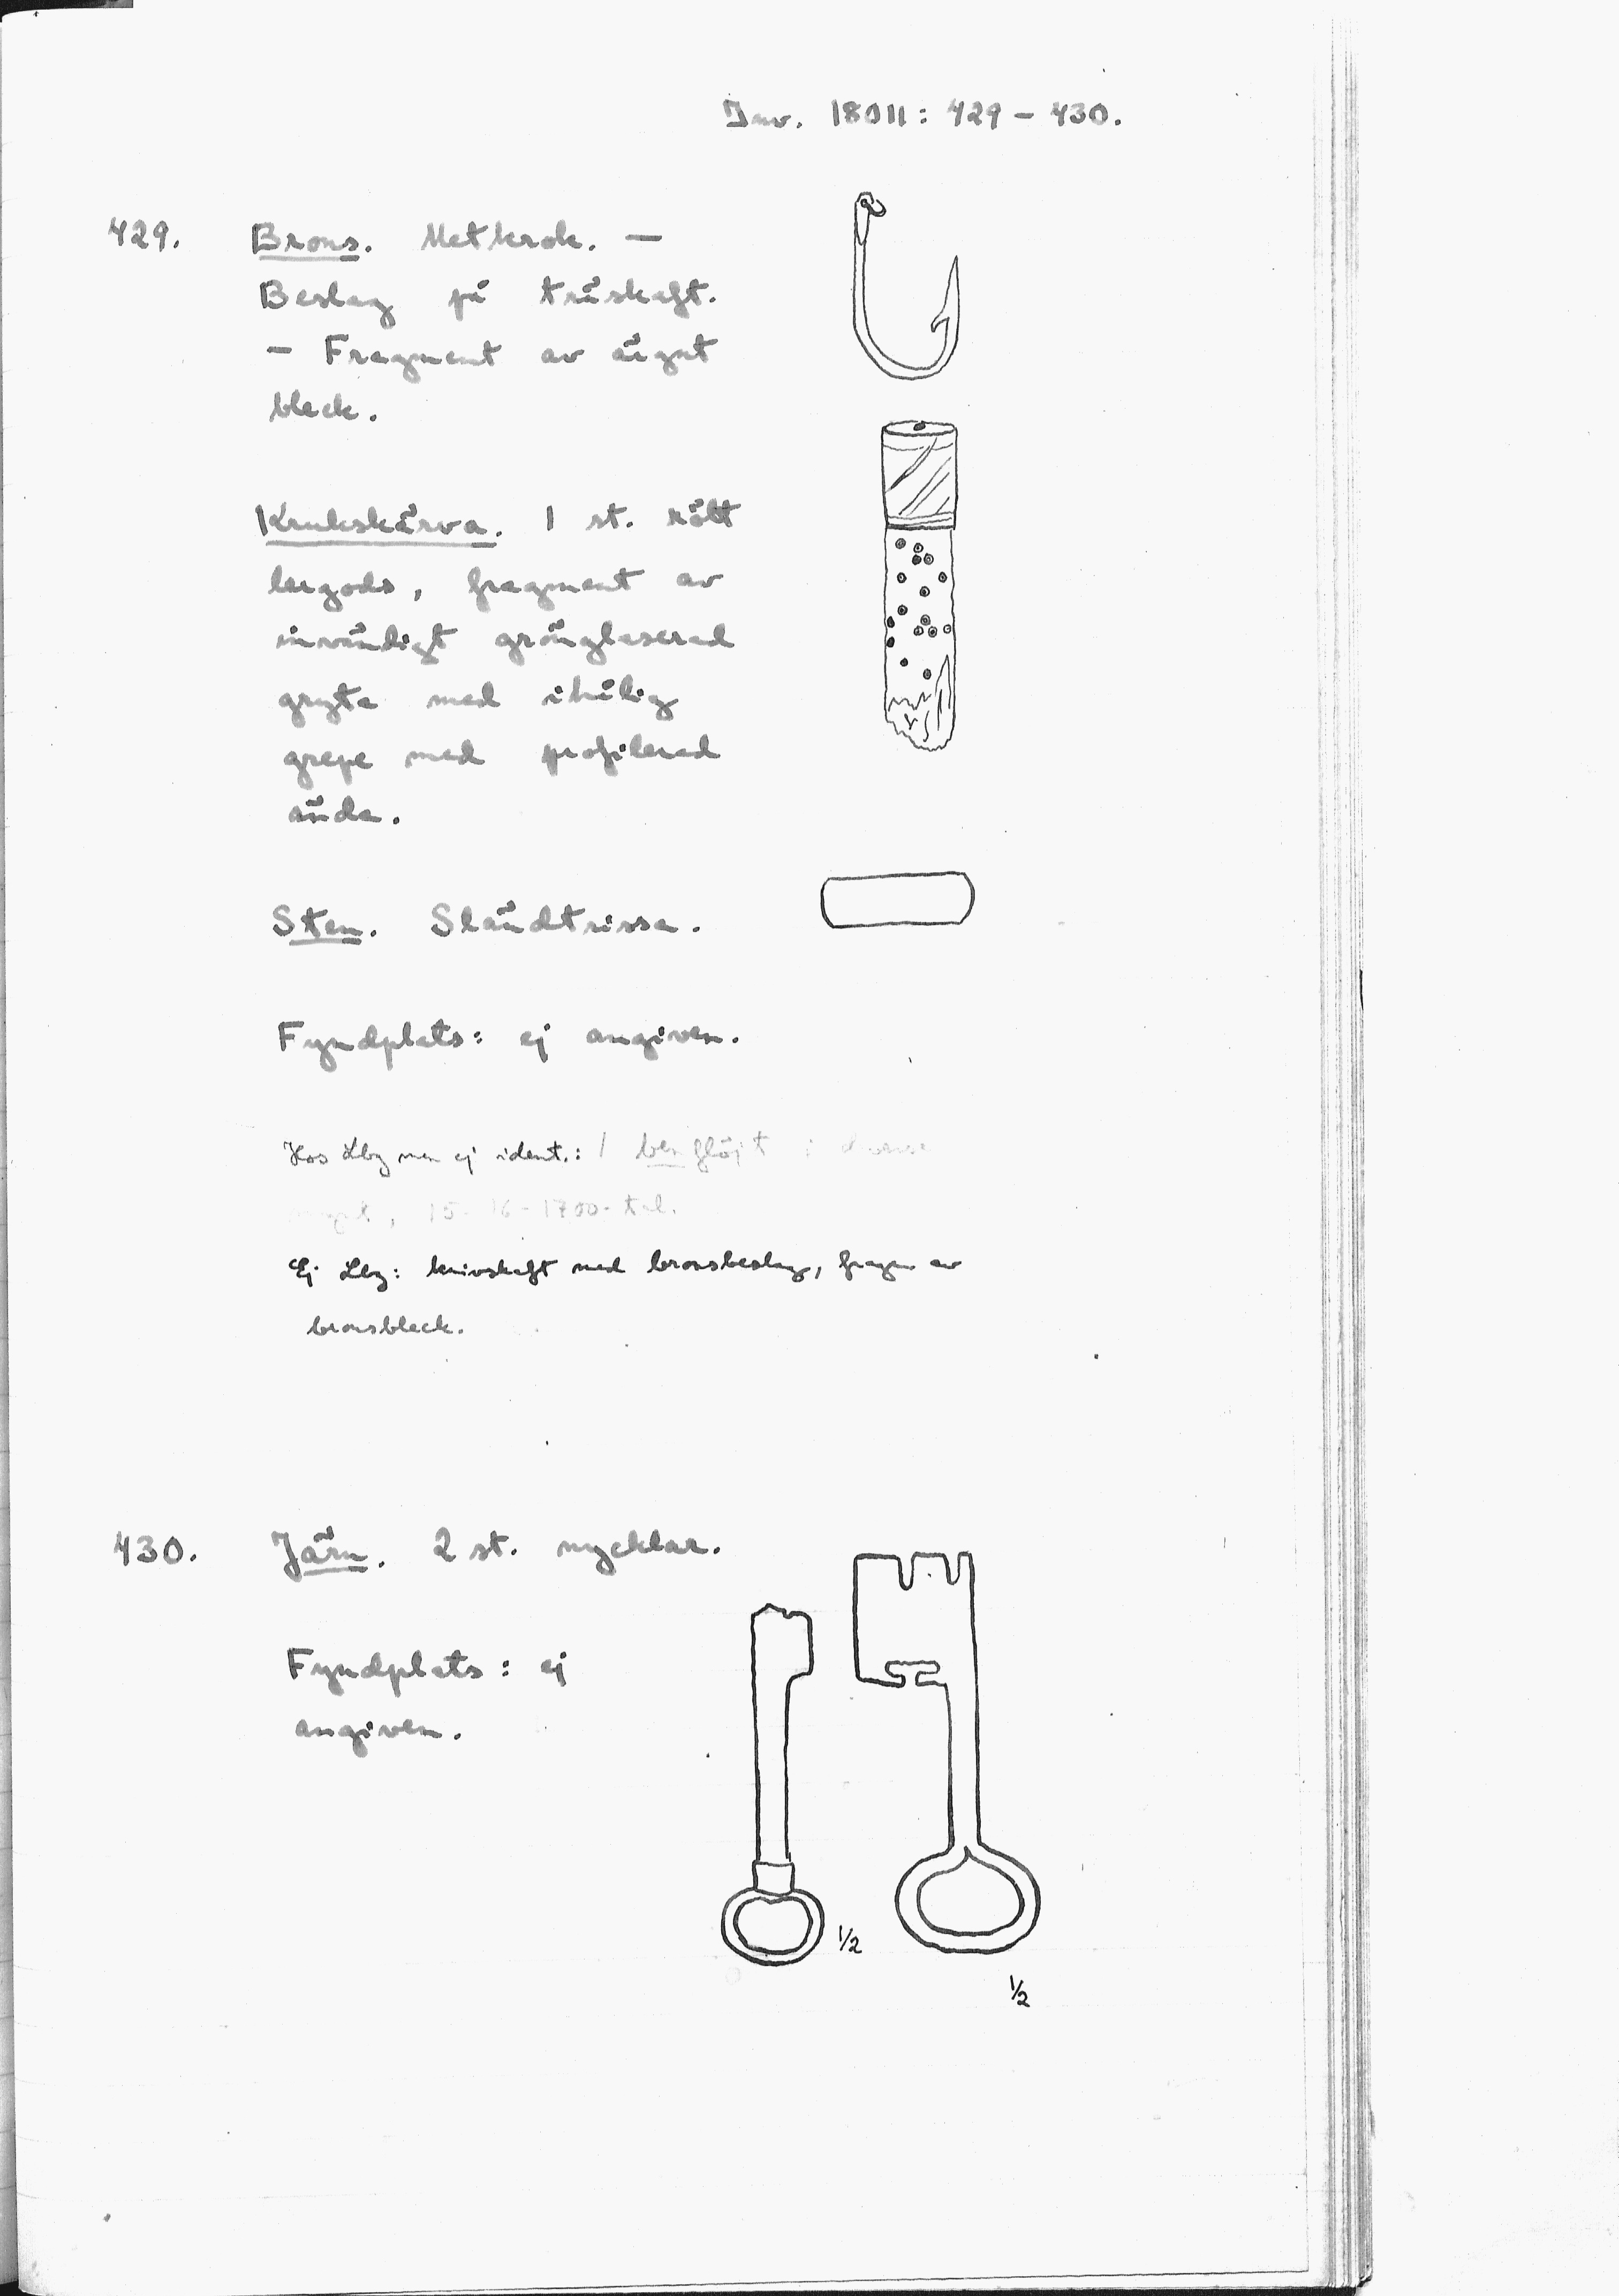 Inv. 18011: 429 - 430.
429. Brons. Metkrok. —
Beslag på träskaft.
- Fragment av ärgat
bleck.
Krukskärva. 1 st. rött
lergods, fragment av
invändigt grönglaserad
gryta med ihålig
grepe med profilerad
ända.
Sten. Sländtrissa.
Fyndplats: ej angiven.
Hos Lbg men ej ident.: 1 benflöjt i
15- 16- 1700-tal.
Ej Lbg: knivskaft med bronsbeslag, fragm av
bronsbleck.
430. Järn. 2 st. nycklar.
Fyndplats: ej
angiven.
1/2
1/2